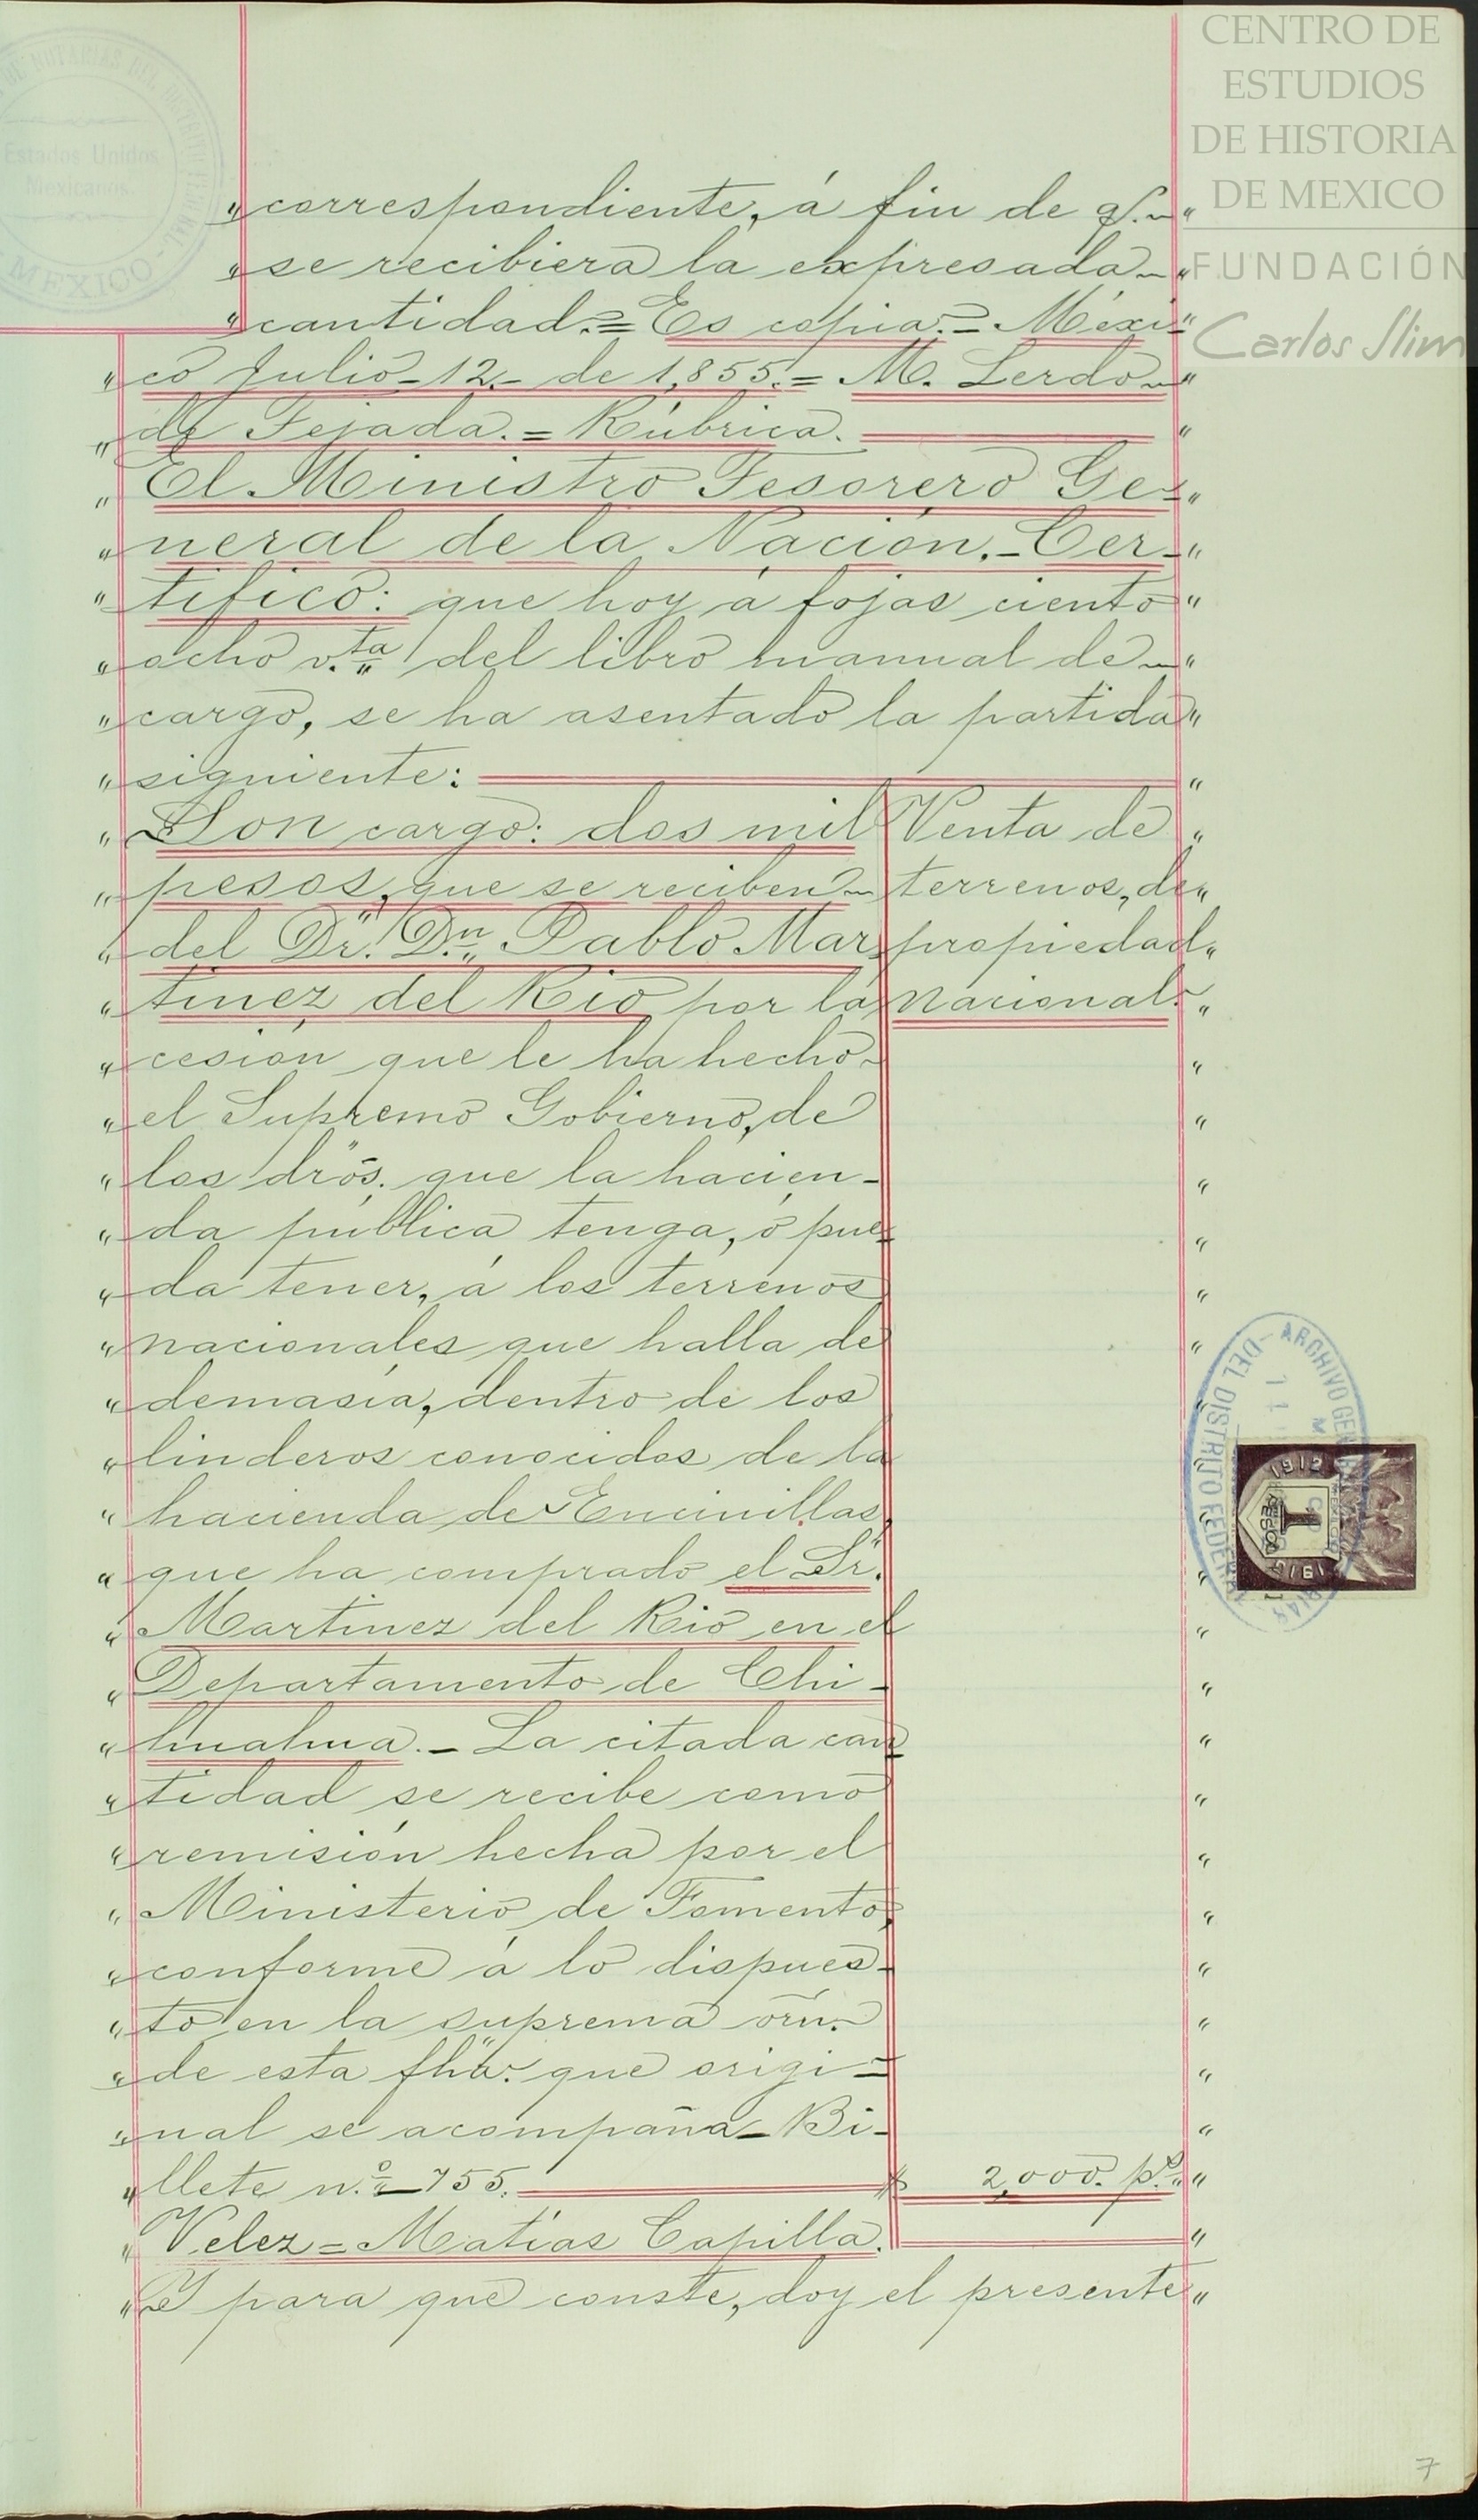 CENTRO DE
ESTUDIOS
DE HISTORIA
DE MEXICO
FUNDACIÓN
Carlos Slim
Estados Unidos
Mexicanos.
MEXICO
„correspondiente, á fin de q.„
„se recibiera la expresada„
„cantidad.=Es copia.=Méxi-„
„co Julio-12,- de 1,855.= M. Lerdo„
„de Tejada.=Rúbrica.„
„El Ministro Tesorero Ge-„
„neral de la Nación.-Cer-„
„tifico: que hoy á fojas ciento„
„ocho v.ta del libro manual de„
„cargo, se ha asentado la partida„
„siguiente:„
„Son cargo: dos mil Venta de„
„pesos, que se reciben terrenos, de„
„del Dr. Dn. Pablo Mar- propiedad„
„tinez del Rio por la nacional.„
„cesión que le ha hecho„
„el Supremo Gobierno, de„
„los drõs. que la hacien-„
„da pública tenga, ó pue-„
„da tener, á los terrenos„
„nacionales que halla de„
„demasía, dentro de los„
„linderos conocidos de la„
„hacienda de Encinillas,„
„que ha comprado el Sr.„
„Martinez del Rio en el„
„Departamento de Chi-„
„huahua.-La citada can-„
„tidad se recibe como„
„remisión hecha por el„
„Ministerio de Fomento,„
„conforme á lo dispues-„
„to en la suprema orñ.„
„de esta fha. que origi-„
„nal se acompaña-Bi-„
„llete n.º-755. $ 2,000. ps.„
„Velez=Matías Capilla.„
„Y para que conste, doy el presente„
ARCHIVO GEN
DEL DISTRITO FEDERAL
1912
1913
UN PESO
7